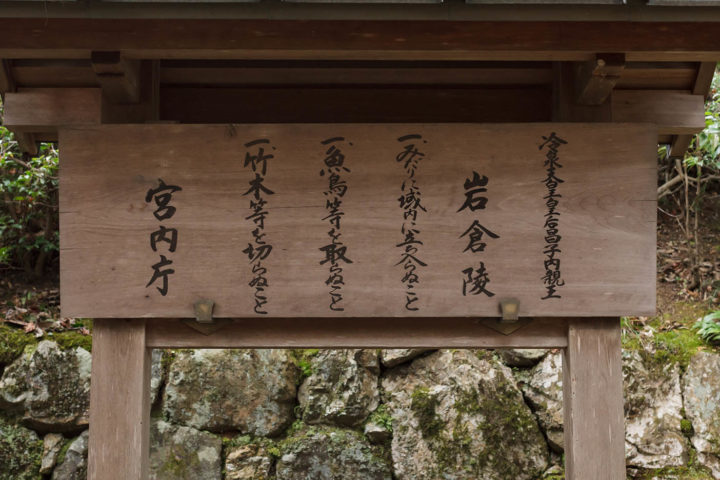 冷泉天皇皇后昌子内親王
岩倉陵
一、みだりに域内に立ち入らぬこと
一、魚鳥等を取らぬこと
一、竹木等を切らぬこと
宮内庁